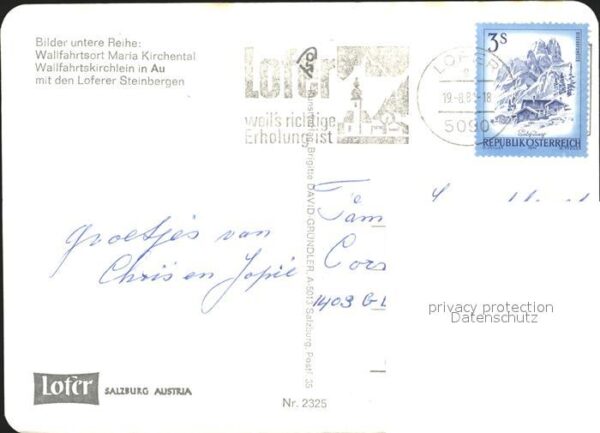 Bilder untere Reihe:
Wallfahrtsort Maria Kirchental
Wallfahrtskirchlein in Au
mit den Loferer Steinbergen
Lofer
weil's richtige
Erholung ist
LOFER
19.-8.80-18
5090
3S
REPUBLIK ÖSTERREICH
Groetjes van
Chris en Jopie
Fam
Cors
1403 GL
Brigitte DAVID GRÜNDLER, A-5013 Salzburg, Postf. 35
privacy protection
Datenschutz
Lofer SALZBURG AUSTRIA
Nr. 2325